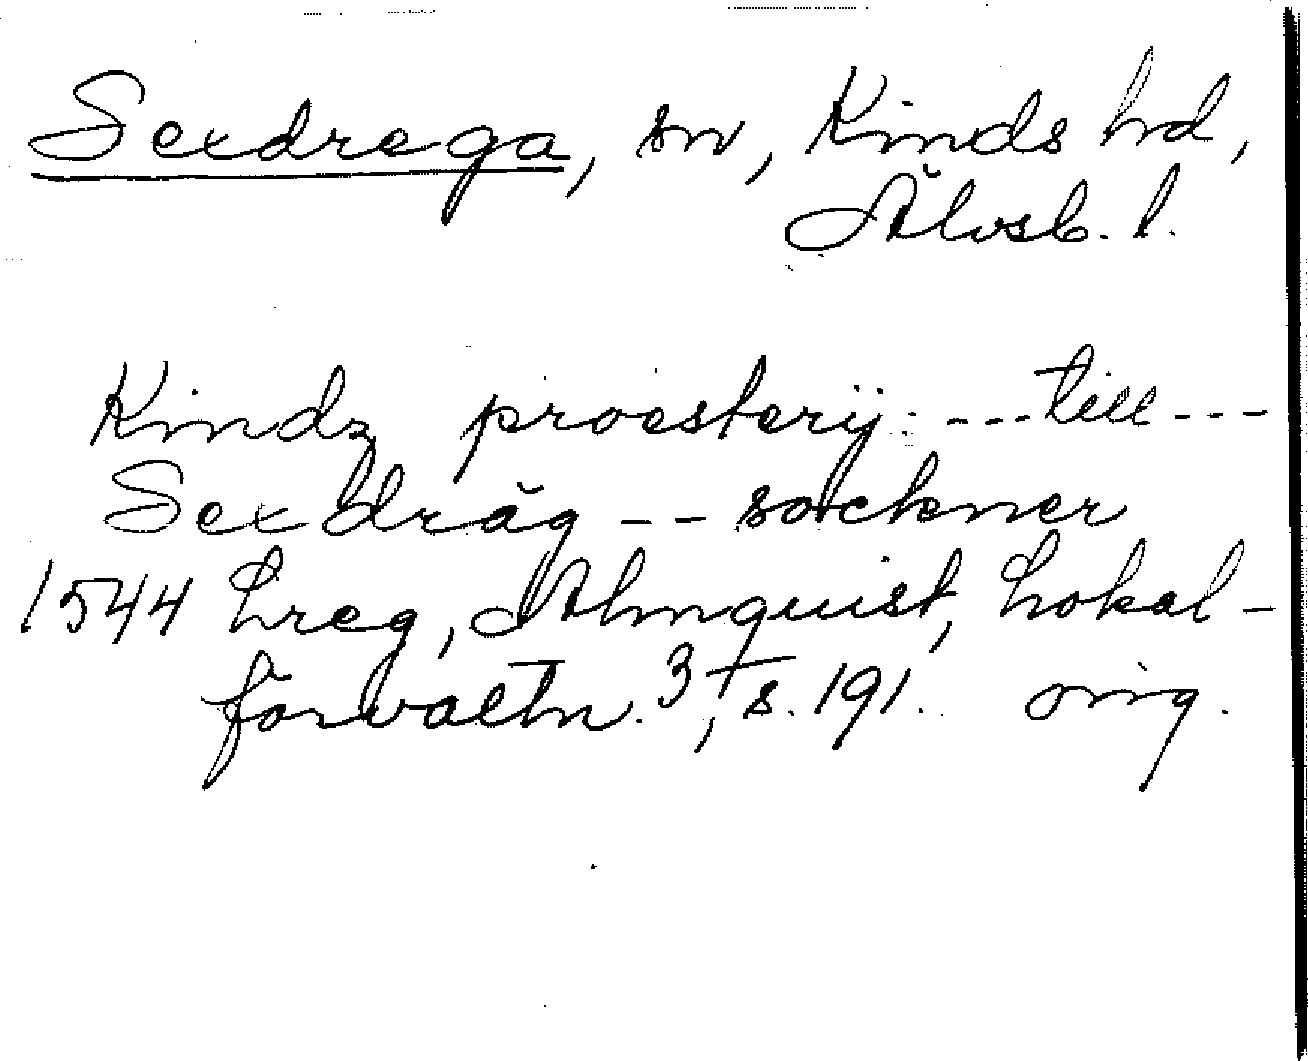 Sexdrega, sn, Kinds hd,
Älvsb. l.
Kindz proesterij: ---till---
Sexdräg -- sockner
1544 Lreg, Almquist, Lokal-
förvaltn. 3, s. 191. orig.